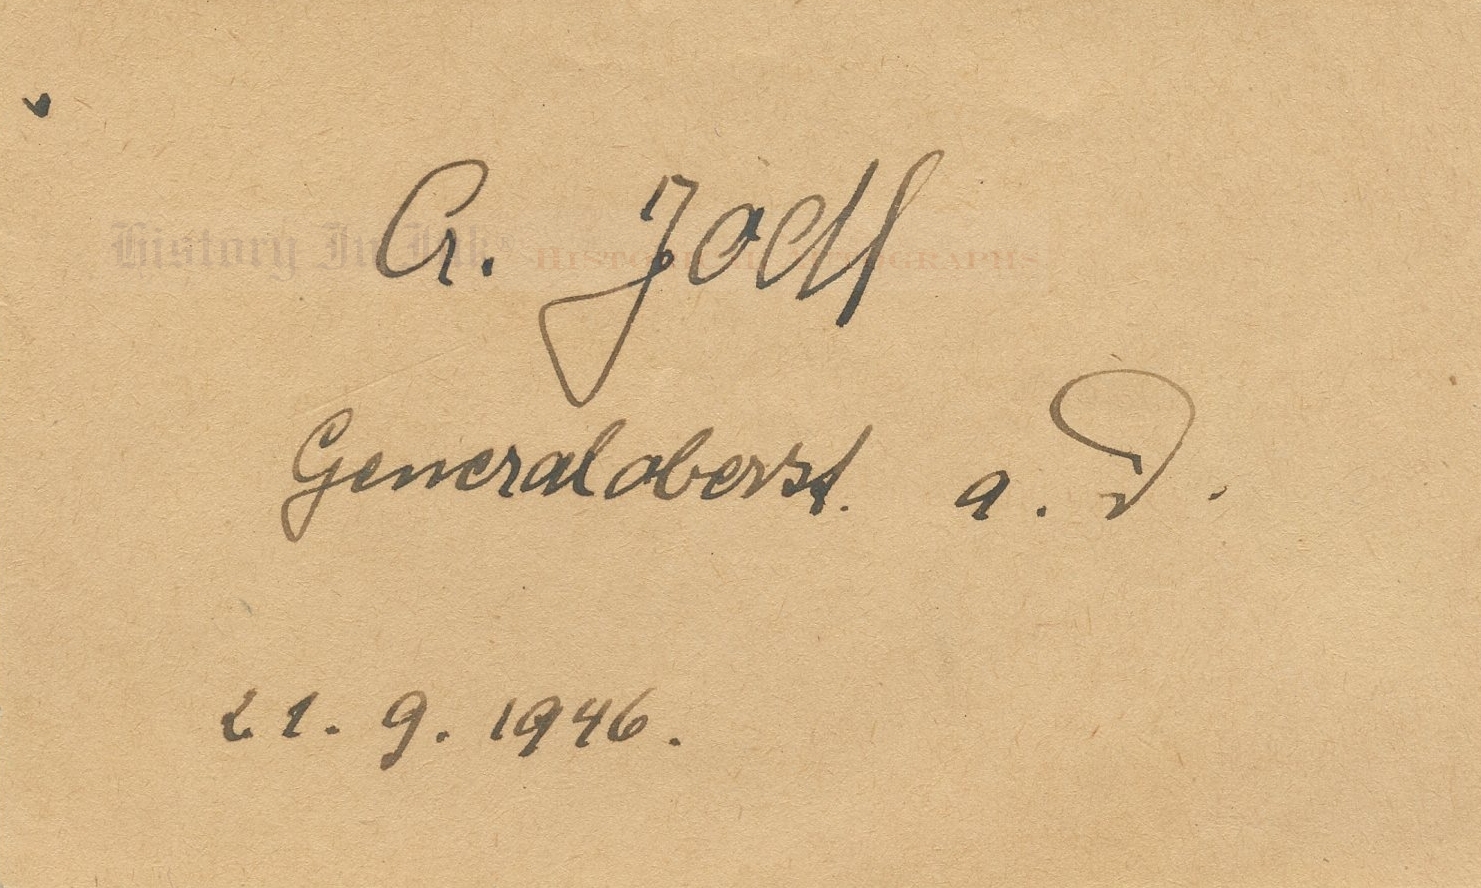 A. Jodl
History In Ink® HISTORICAL AUTOGRAPHS
Generaloberst. a. D.
21. 9. 1946.